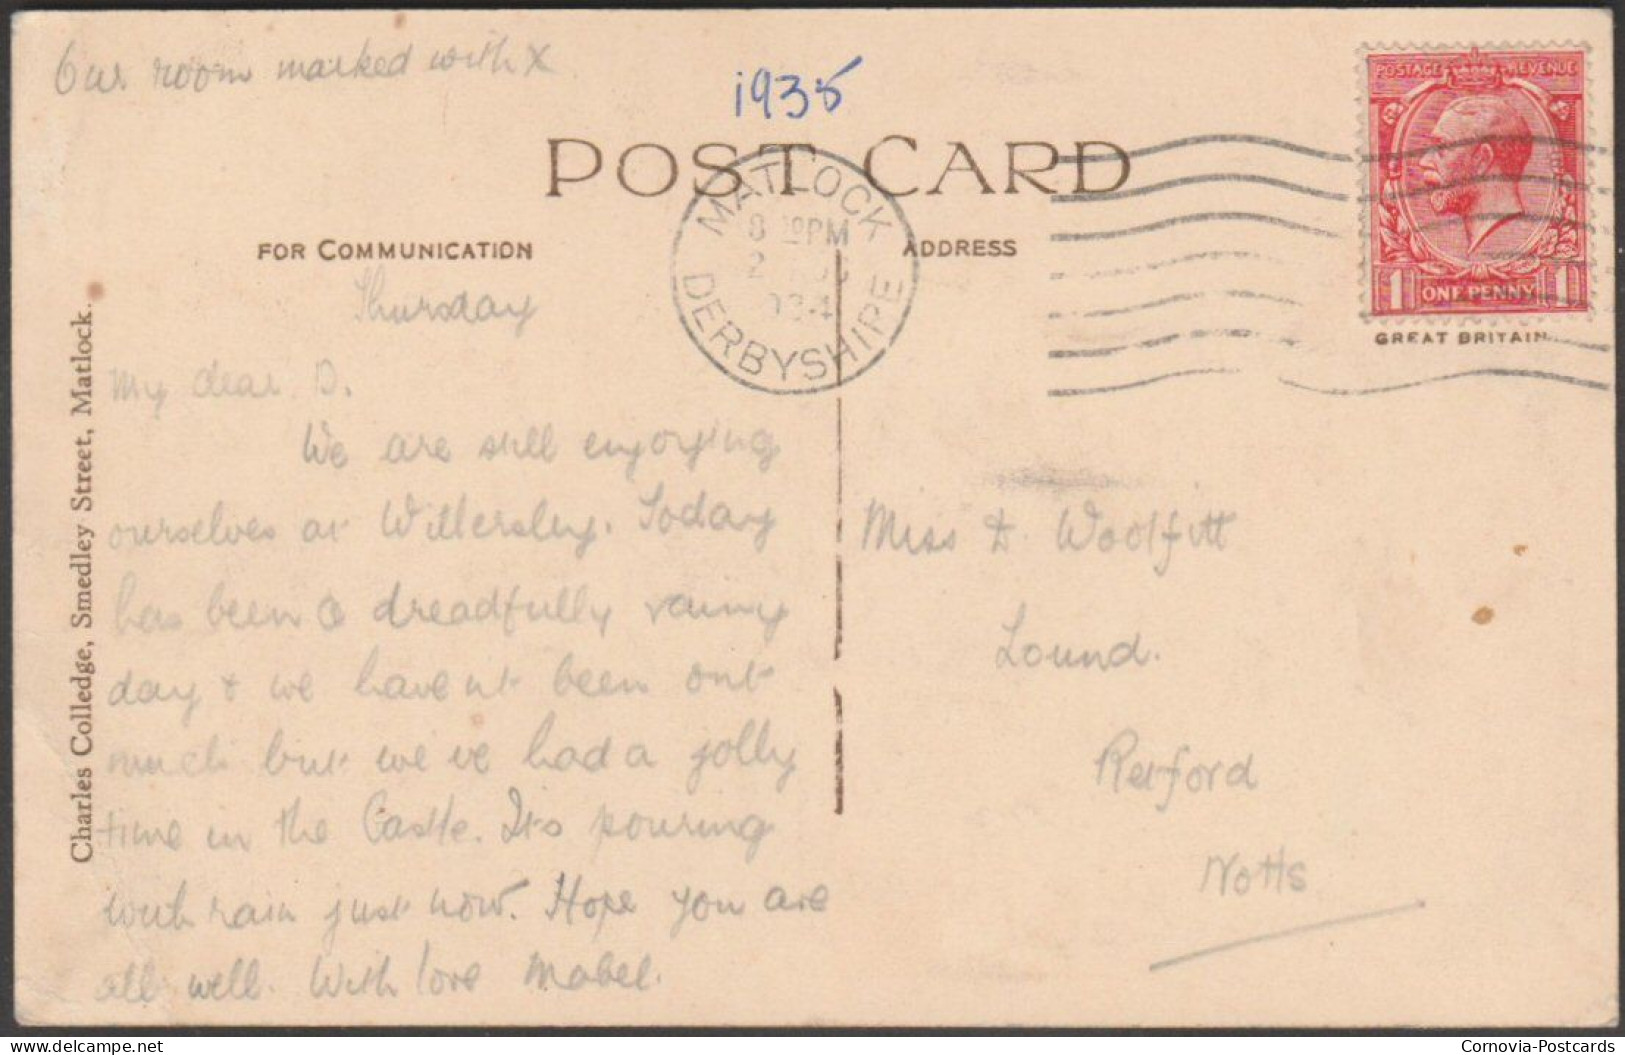 Our room marked with X
1935
POST CARD
MATLOCK
DERBYSHIRE
POSTAGE REVENUE
1 ONE PENNY 1
GREAT BRITAIN
FOR COMMUNICATION
ADDRESS
Thursday
My dear D.
We are still enjoying
ourselves at Willersley. Today
has been a dreadfully rainy
day & we haven't been out
much but we've had a jolly
time in the Castle. It's pouring
with rain just now. Hope you are
all well. With love Mabel.
Miss D. Woolfitt
Lound.
Retford
Notts
Charles Colledge, Smedley Street, Matlock.
delcampe.net
Cornovia-Postcards